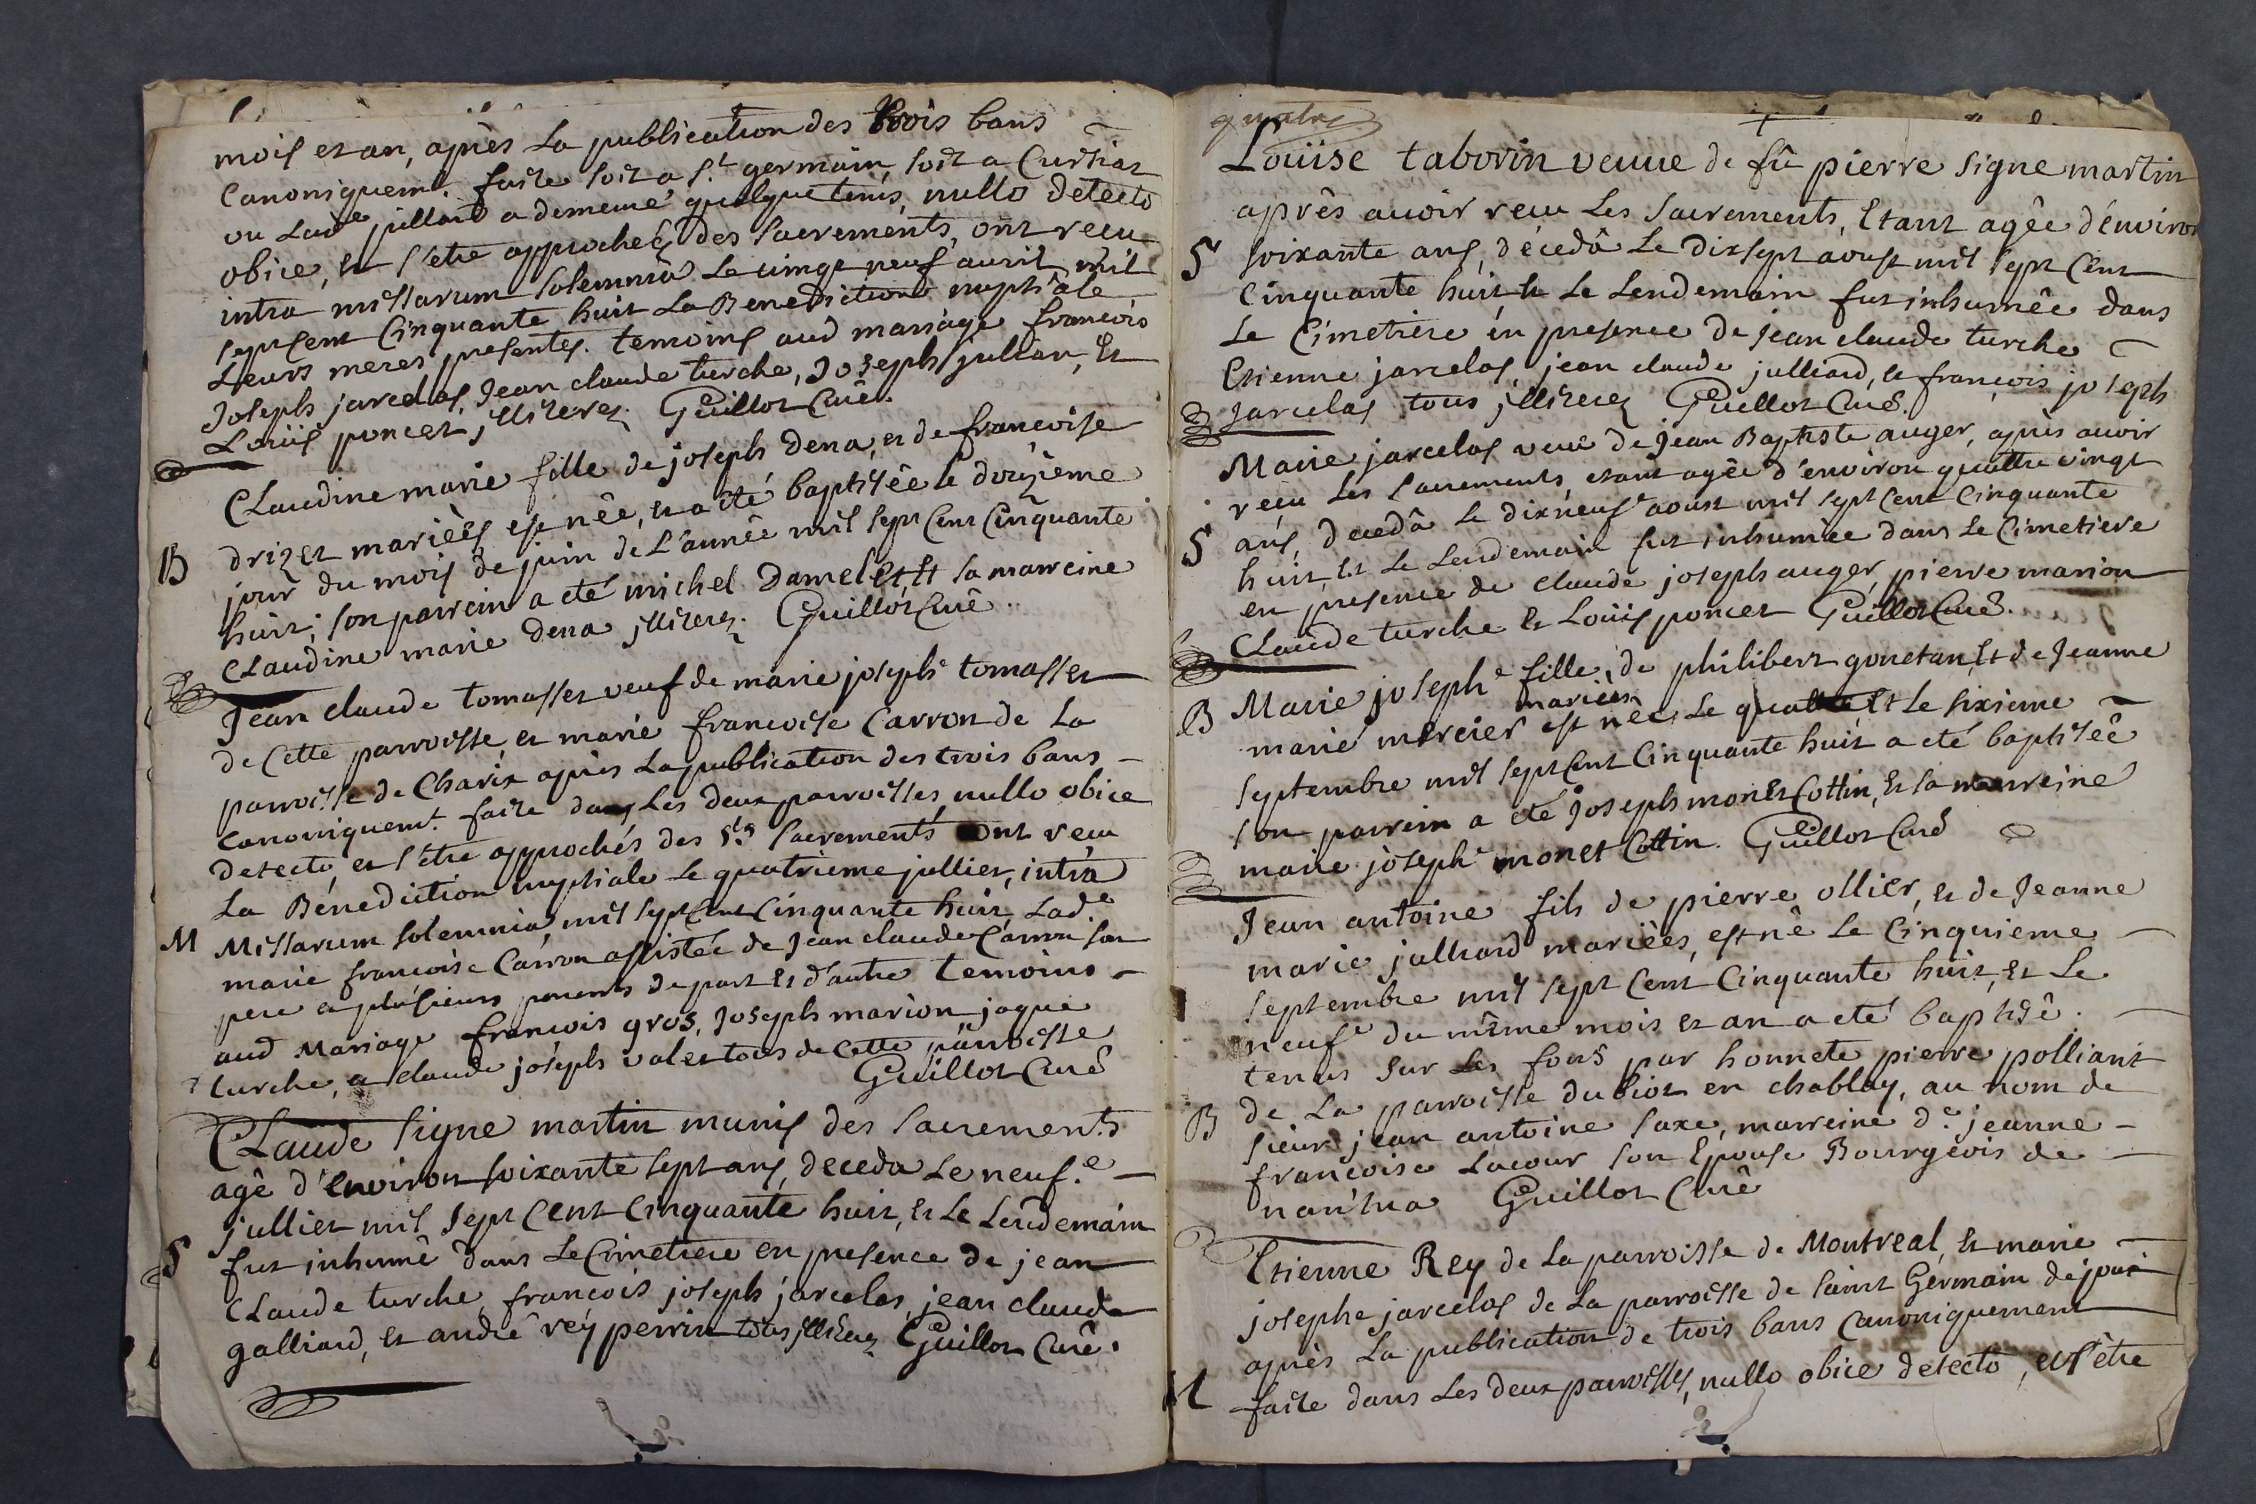 mois et an, après la publication des trois bans
Canoniquemt. faite soit a St. germain, soit a Curtiat
ou lade jullard a demeuré quelque tems, nullo detecto
obice, Et s'etre approcheés des sacrements, ont recu
intra missarum solemnia le vingt neuf auril mil
sept cent Cinquante huit La Benediction nuptiale
Leurs meres presentes. temoins aud mariage francois
Joseph jarcelas, Jean claude turche, Joseph jullian, Et
Loüis poncet jlliterez. Guillot Curé.
CLaudine marie fille de joseph Dena, et de francoise
drizet marièès est née, et a été baptisèe le douzième
B
jour du mois de juin de L'année mil sept Cent Cinquante
huit; son parrein a eté michel Damelet Et sa marreine
CLaudine marie Dena jlliterez. Guillot Curé.
Jean claude tomasset veuf de marie josephe tomasset
de Cette parroisse, et marie francoise Carron de La
parroisse de Charix après La publication des trois bans
Canoniquemt. faite dans Les deux parroisses, nullo obice
detecto, et s'etre approchés des Sts sacrements ont recu
La Bénediction nuptiale Le quatrieme jullier, intra
M Missarum solemnia, mil sept Cent Cinquante huit, Lade
marie francoise Carron assistée de Jean claude Carron son
pere et plusieurs parents de part Et d'autre temoins
aud Mariage francois gros, Joseph marion, jaque
turche, et claude joseph valet tous de Cette parroisse
Guillot Curé
CLaude signe martin munis des sacrements
agê d'environ soixante sept ans, deceda Le neufe.
jullier mil sept Cent Cinquante huit, Et Le Lendemain
S fut inhumê dans Le Cimetiere en presence de jean
CLaude turche, francois joseph jarcelas, jean claude
galliard, et andrê rey perrin tous jlliterez Guillot Curê.
quatre
Loüise taborin veuue de fû pierre signe martin
après auoir recu Les sacrements, Etant agêe d'environ
S soixante ans, décedâ Le dix sept aoust mil sept Cent
Cinquante huit Et Le Lendemain fut inhumêe dans
Le Cimetiere en presence de Jean claude turche
Etienne jarcelas, jean claude julliard, et françois joseph
Jarcelas tous jlliterez Guillot Curé.
Marie jarcelas veuê de Jean Baptiste auger, après auoir
reçu Les sacrements, etant agêe d'environ quattre vingt
S ans, décedâ Le dix neufe aoust mil sept Cent Cinquante
huit, Et Le Lendemain fut inhumêe dans Le Cimetiere
en presence de claude joseph auger, pierre marion
CLaude turche Et Loüis poncet Guillot Curé.
Marie josephe fille de philibert gonetan, Et de Jeanne
mariées
B marie mercier est nêe Le quattre Et Le sixieme
septembre mil sept Cent Cinquante huit a eté baptisêe
son parrein a eté Joseph monet Cottin, Et sa marreine
marie josephe monet Cottin. Guillot Curé
Jean antoine fils de pierre ollier, Et de Jeanne
marie julliard mariêes, est nê Le Cinquieme
septembre mil sept Cent Cinquante huit, Et Le
neufe du même mois et an a eté baptisê.
tenus sur Les fons par honnete pierre polliant
B de La parroisse du biot en chablay, au nom de
sieur jean antoine saxe, marreine de. jeanne
francoise Lacour son Epouse Bourgeois de
nantua Guillot Curê
Etienne Rey de La parroisse de Montreal, Et marie
josephe jarcelas de La parroisse de saint Germain de joux
après La publication de trois bans Canoniquement
M faite dans Les deux parroisses, nullo obice detecto, et s'être